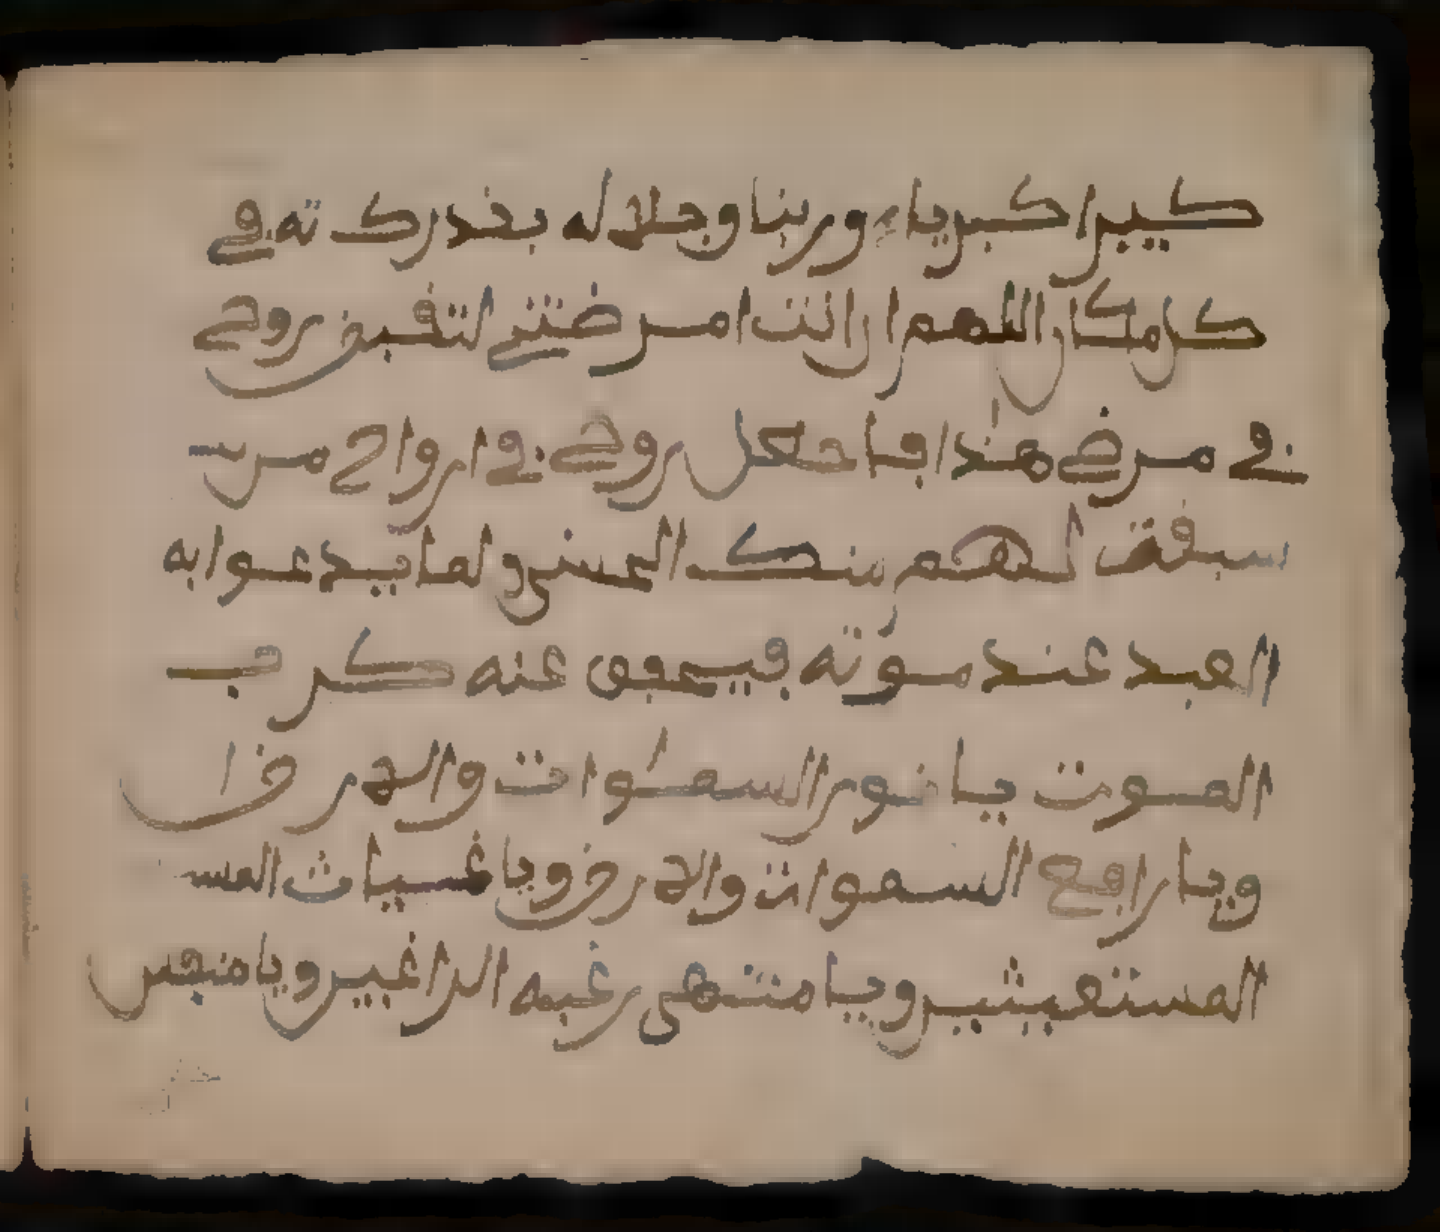 كبيرا كبرياء وربنا وجلاله بقدرته في
كل مكان اللهم ان انت امرضتني لتقبض روحي
في مرضي هذا فاجعل روحي في ارواح من
سبقت لهم منك الحسنى ومما يدعوا به
العبد عند موته فيخفف عنه كرب
الموت يا نور السموات والارض
ويا رافع السموات والارض ويا غياث المس
المستغيثين ويا منتهى رغبه الراغبين ويا منفس